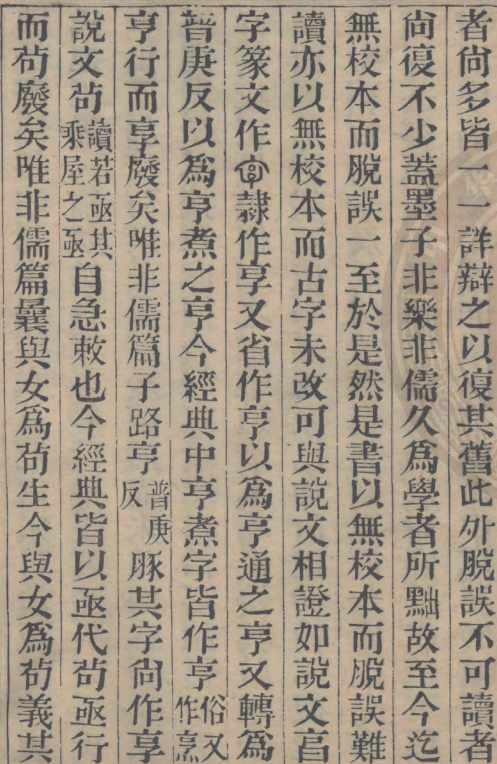 者尚多皆一一詳辯之以復其舊此外脫誤不可讀者
尚復不少蓋墨子非樂非儒久爲學者所黜故至今迄
無校本而脫誤一至於是然是書以無校本而脫誤難
讀亦以無校本而古字未改可與說文相證如說文亯
字篆文作隸作享又省作亨以爲亨通之亨又轉爲
普庚反以爲亨煮之亨今經典中亨煮字皆作亨俗又作烹
亨行而享廢矣唯非儒篇子路享普庚反豚其字尚作享
說文茍讀若亟其乘屋之亟自急敕也今經典皆以亟代茍亟行
而茍廢矣唯非儒篇曩與女爲茍生今與女爲茍義其